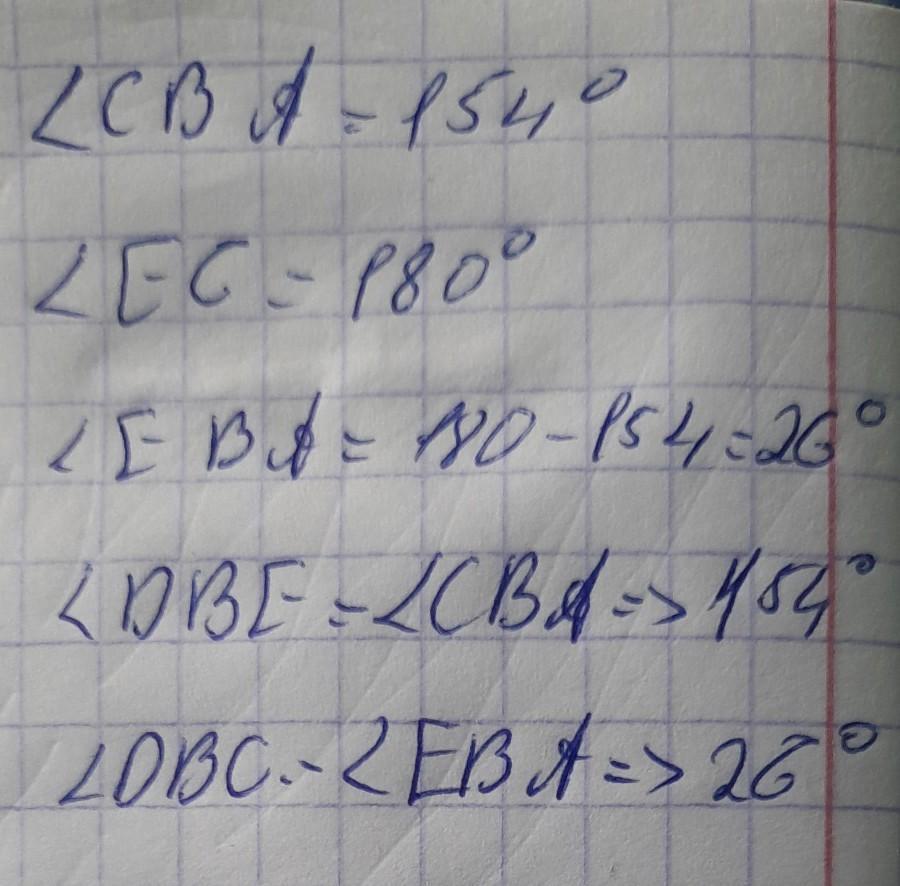 ∠CBA = 154°
∠EC = 180°
∠EBA = 180 - 154 = 26°
∠DBE = ∠CBA => 154°
∠DBC = ∠EBA => 26°